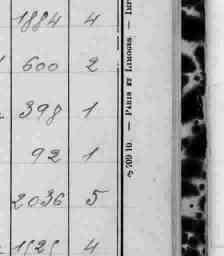 1884 4
600 2
398 1
92 1
2036 5
4
20910. — PARIS ET LIMOGES. —